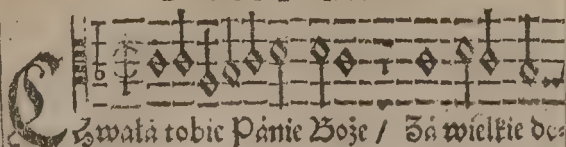 Chwałá tobie Pánie Boże / Zá wielkie do=